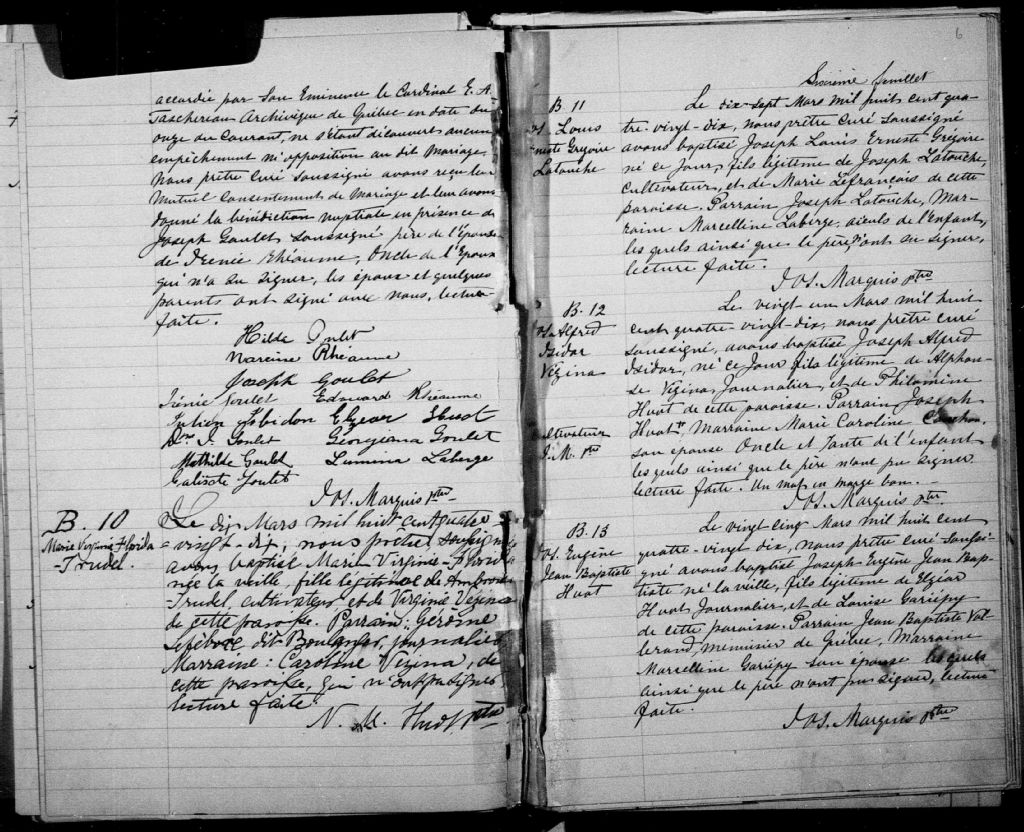 accordée par Son Eminence le Cardinal E. A.
Taschereau Archevêque de Québec en date du
onze du Courant, ne s'étant découvert aucun
empêchement ni opposition au dit Mariage,
Nous prêtre Curé soussigné avons reçu leur
Mutuel Consentement de Mariage et leur avons
donné la bénédiction nuptiale en présence de
Joseph Goulet soussigné père de l'épouse
de Irenée Rhéaume, Oncle de l'Epoux
qui n'a su signer, les époux et quelques
parents ont signé avec nous, lecture
faite.
Hilda Goulet
Narcisse Rhéaume
Joseph Goulet
Irénée Goulet Edouard Rhéaume
Julien Gobidon Elzear Huot
J. Goulet Georgiana Goulet
Mathilde Goulet Lumina Laberge
Calixte Goulet
Jos. Marquis ptre
B. 10
Marie Virginie Florida
Trudel.
Le dix Mars mil huit cent quatre
-vingt-dix, nous prêtre soussigné
avons baptisé Marie Virginie Florida
née la veille, fille légitime de Ambroise
Trudel, cultivateur et de Virginie Vézina
de cette paroisse. Parrain: Gédéone
Lefebvre dit Boulanger, journalier
Marraine: Caroline Vézina, de
cette paroisse, qui n'ont pas signé
lecture faite.
N. M. Huot, ptre
6
Sixième feuillet
B. 11
os. Louis
neste Grégoire
Latouche
Le dix-sept Mars mil huit cent qua-
tre-vingt-dix, nous prêtre Curé soussigné
avons baptisé Joseph Louis Ernest Grégoire
né ce jour, fils légitime de Joseph Latouche,
Cultivateur, et de Marie Lefrançois de cette
paroisse. Parrain Joseph Latouche, Mar-
raine Marcelline Laberge, aieuls de l'enfant,
les quels ainsi que le père n'ont su signer,
lecture faite.
Jos. Marquis ptre
B. 12
os. Alfred
Isidor
Vézina
cultivateur
J. M. ptre
Le vingt-un Mars mil huit
cent quatre-vingt-dix, nous prêtre curé
soussigné, avons baptisé Joseph Alfred
Isidor, né ce Jour fils légitime de Alphon-
se Vézina, Journalier, et de Philomine
Huot de cette paroisse. Parrain Joseph
Huot, Marraine Marie Caroline
son épouse Oncle et Tante de l'enfant
les quels ainsi que le père n'ont pu signer
lecture faite. Un mot en marge bon.-
Jos. Marquis ptre
B. 13
os. Eugène
Jean Baptiste
Huot
Le vingt cinq Mars mil huit cent
quatre-vingt dix, nous prêtre Curé soussi-
gné avons baptisé Joseph Eugène Jean Bap-
tiste né la veille, fils légitime de Elzéar
Huot Journalier, et de Louise Gariépy
de cette paroisse. Parrain Jean Baptiste Val-
lerand, menuisier de Québec, Marraine
Marcelline Gariépy son épouse les quels
ainsi que le père n'ont pu signer, lecture
faite.
Jos. Marquis ptre